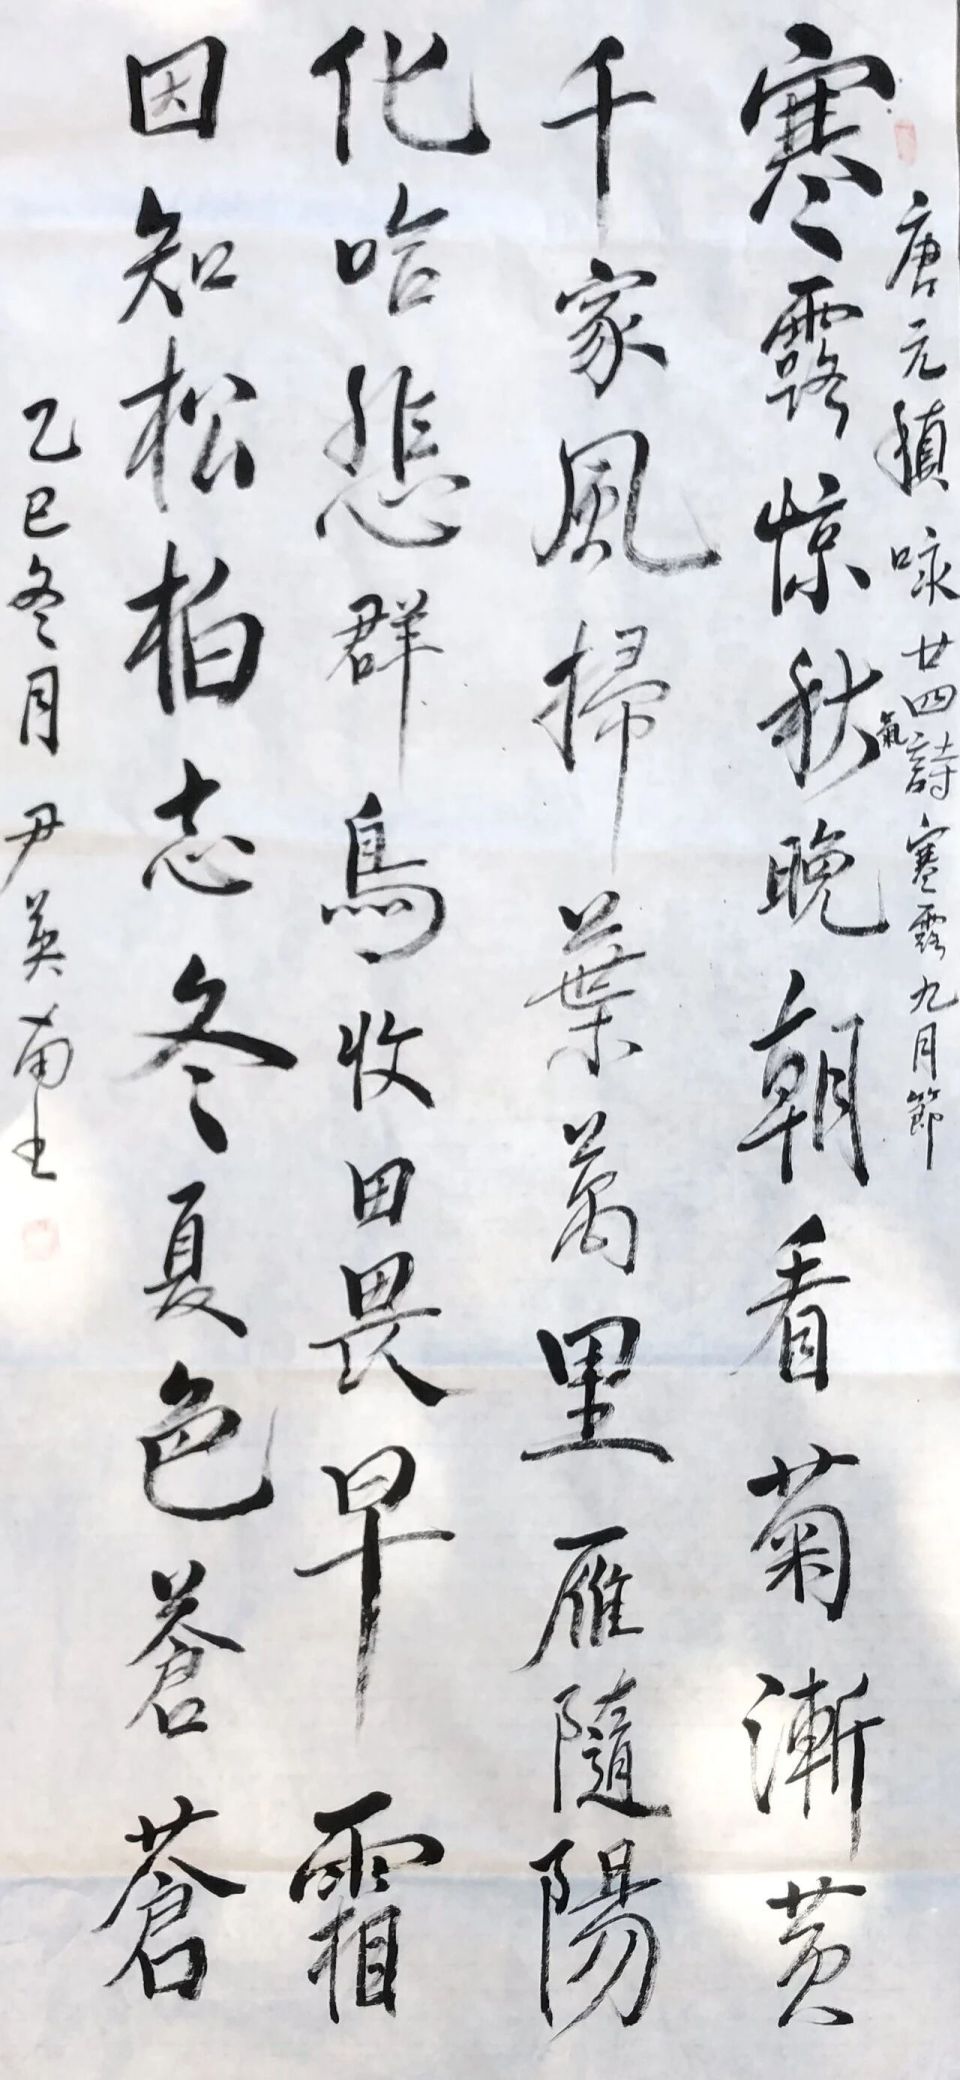 唐元稹咏廿四氣詩寒露九月節
寒露惊秋晚朝看菊漸黄
千家風掃葉萬里雁隨陽
化哈悲群鳥收田畏早霜
因知松柏志冬夏色蒼蒼
乙巳冬月尹英甫土